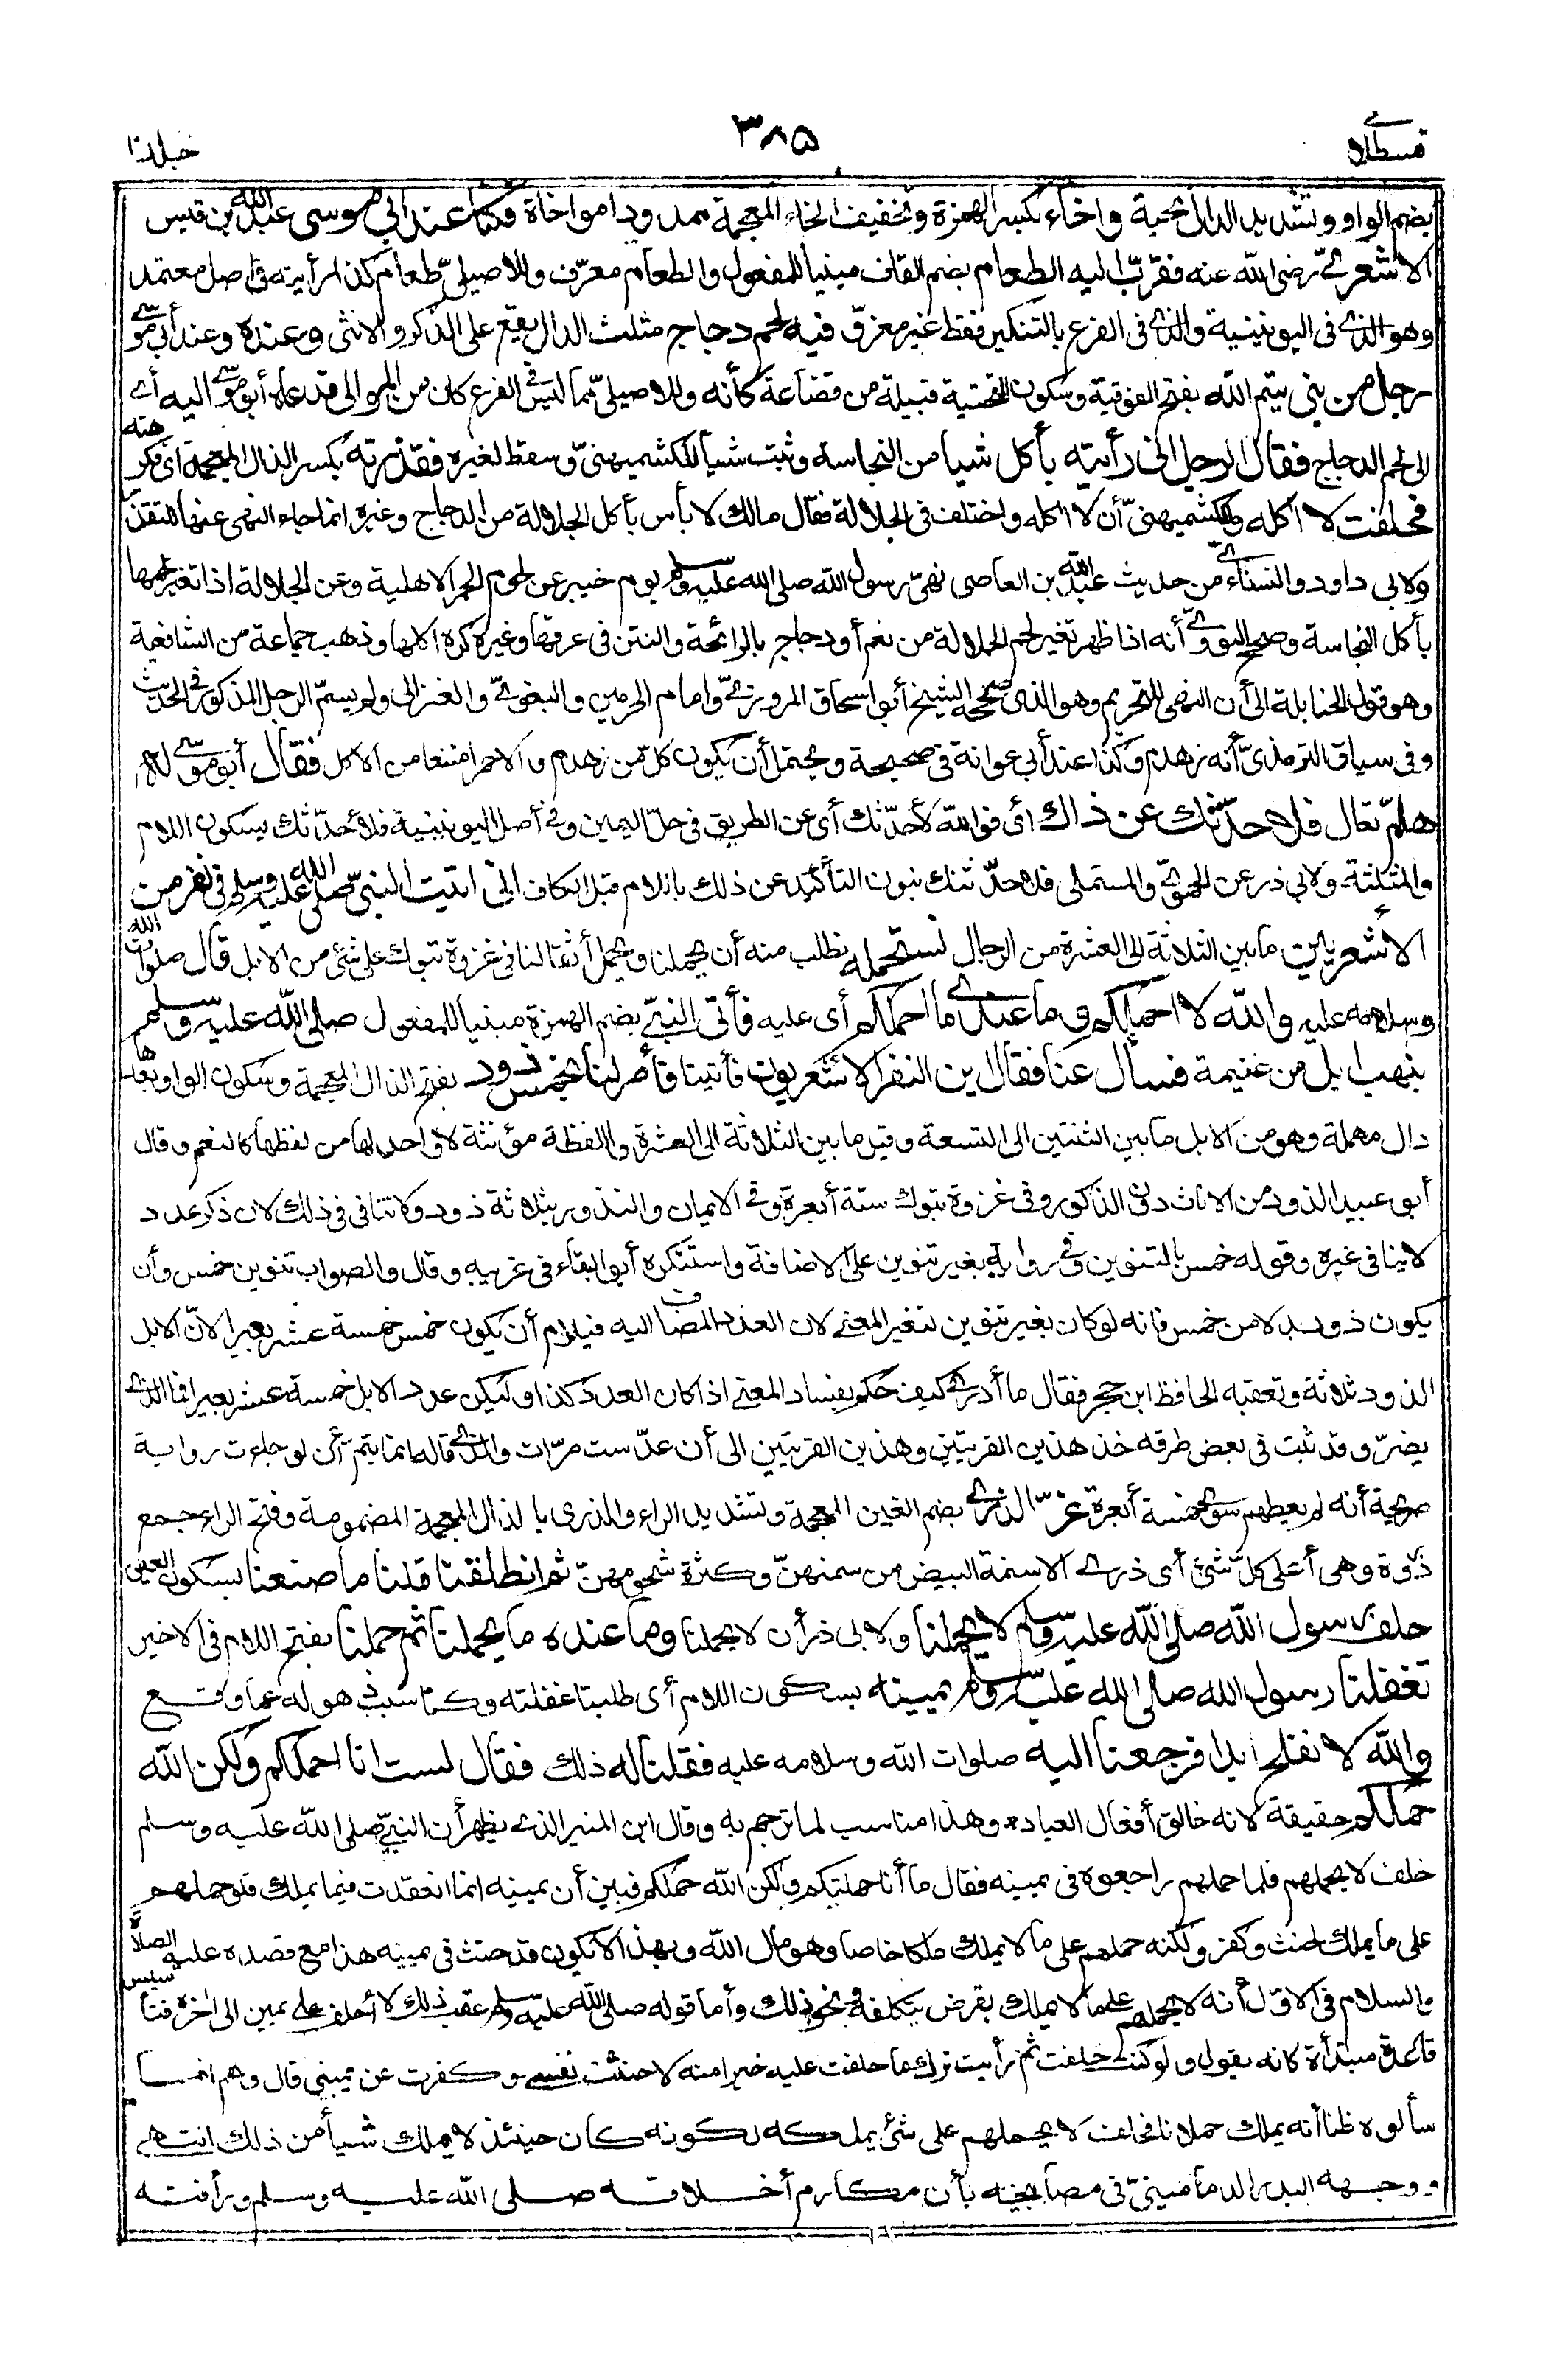 قسطلانی
٣٨٥
جلد ١٠
بضم الواو وتشديد الدال محبة واخاء بكسر الهمزة وتخفيف الخاء المعجمة ممدودا مواخاة فكنا عند ابي موسى عبد الله بن قيس
الاشعري رضى الله عنه فقرّب اليه الطعام بضم القاف مبنيا للمفعول والطعام معرّف وللاصيلي طعام كذا رأيته في اصل معتمد
وهو الذي فى اليونينية والذي فى الفرع بالتنكير فقط غير معرّف فيه لحم دجاج مثلث الدال يقع على الذكر والانثى وعنده وعند أبي موسى
رجل من بني تيم الله بفتح الفوقية وسكون التحتية قبيلة من قضاعة كأنه وللاصيلي مما ليس في الفرع كان من الموالى فدعاه أبو موسى اليه أي
الى لحم الدجاج فقال الرجل انى رأيته يأكل شيا من النجاسة وثبت شيأ للكشميهنيّ وسقط لغيره فقذرته بكسر الذال المعجمة اى فكرهته
فحلفت لا آكله وللكشميهنيّ أن لا آكله واختلف فى الجلالة فقال مالك لا بأس بأكل الجلالة من الدجاج وغيره انما جاء النهى عنها للتقذر
ولابى داود والنسائيّ من حديث عبد الله بن العاصى نهى رسول الله صلى الله عليه وسلم يوم خيبر عن لحوم الحمر الاهلية وعن الجلالة اذا تغير لحمها
بأكل النجاسة وصحح النووي أنه اذا ظهر تغير لحم الجلالة من نعم أو دجاج بالرائحة والنتن فى عرقها وغيره كره اكلها وذهب جماعة من الشافعية
وهو قول الحنابلة الى أن النهى للتحريم وهو الذى صححه الشيخ أبو اسحاق المروزيّ وامام الحرمين والبغويّ والغزالى ولم يسمّ الرجل المذكور في الحديث
وفى سياق الترمذيّ أنه زهدم وكذا عند أبى عوانة في صحيحه ويحتمل أن يكون كل من زهدم والاحمر امتنعا من الاكل فقال أبو موسى له
هلمّ تعال فلاحدّثنك عن ذاك أى فوالله لأحدّثنك أى عن الطريق فى حلّ اليمين وفي أصل اليونينية فلأحدّثك بسكون اللام
والمثلثة ولابى ذر عن الحموي والمستملى فلاحدّثنك بنون التأكيد عن ذلك باللام قبل الكاف انى اتيت النبيّ صلى الله عليه وسلم في نفر من
الأشعريين ما بين الثلاثة الى العشرة من الرجال نستحمله نطلب منه أن يحملنا ويحمل أثقالنا فى غزوة تبوك على شئ من الابل قال صلوات الله
وسلامه عليه والله لا احملكم وما عندي ما احملكم أى عليه فأتى النبيّ بضم الهمزة مبنيا للمفعول صلى الله عليه وسلم
بنهب ابل من غنيمة فسأل عنا فقال اين النفر الاشعريون فأتينا فأمر لنا بخمس ذود بفتح الذال المعجمة وسكون الواو بعدها
دال مهملة وهو من الابل ما بين الثنتين الى التسعة وقيل ما بين الثلاثة الى العشرة واللفظة مؤنثة لا واحد لها من لفظها كالنعم وقال
أبو عبيد الذود من الاناث دون الذكور وفى غزوة تبوك ستة أبعرة وفي الايمان والنذور بثلاثة ذود ولا تنافى فى ذلك لان ذكر عدد
لا ينافى غيره وقوله خمس بالتنوين وفي رواية بغير تنوين على الاضافة واستنكره أبو البقاء فى غريبه وقال والصواب تنوين خمس وأن
يكون ذود بدلا من خمس فانه لو كان بغير تنوين لتغير المعنى لان العدد المضاف اليه فيلزم أن يكون خمس خمسة عشر بعيرا لانّ الابل
الذود ثلاثة وتعقبه الحافظ ابن حجر فقال ما أدري كيف حكم بفساد المعنى اذا كان العدد كذا وليكن عدد الابل خمسة عشر بعيرا فما الذي
يضرّ وقد ثبت فى بعض طرقه خذ هذين القرينين وهذين القرينين الى أن عدّ ست مرّات والذي قاله انما يتمّ أن لو جاءت رواية
صريحة أنه لم يعطهم سوى خمسة أبعرة غرّ الذري بضم الغين المعجمة وتشديد الراء والذرى بالذال المعجمة المضمومة وفتح الراء جمع
ذروة وهى أعلى كلّ شئ أى ذرى الاسنمة البيض من سمنهنّ وكثرة شحومهنّ ثم انطلقنا قلنا ما صنعنا بسكون العين
حلف رسول الله صلى الله عليه وسلم لا يحملنا ولابى ذر أن لا يحملنا وما عنده ما يحملنا ثم حملنا بفتح اللام فى الاخير
تغفلنا رسول الله صلى الله عليه وسلم يمينه بسكون اللام أى طلبنا غفلته وكنا سبب ذهوله عما وقع
والله لا نفلح ابدا فرجعنا اليه صلوات الله وسلامه عليه فقلنا له ذلك فقال لست انا احملكم ولكن الله
حملكم حقيقة لانه خالق أفعال العباد وهذا مناسب لما ترجم به وقال ابن المنير الذي يظهر أن النبيّ صلى الله عليه وسلم
حلف لا يحملهم فلما حملهم راجعوه فى يمينه فقال ما أنا حملتكم ولكن الله حملكم فبين أن يمينه انما انعقدت فيما يملك فلو حملهم
على ما يملك لحنث وكفر ولكنه حملهم على ما لا يملك ملكا خاصا وهو مال الله وبهذا لا يكون قد حنث فى يمينه هذا مع قصده عليه الصلاة
والسلام فى الاوّل أنه لا يحملهم على ما لا يملك بقرض يتكلفه ونحو ذلك وأما قوله صلى الله عليه وسلم عقب ذلك لا أحلف على يمين الى آخره فتأسيس
قاعدة مبتدأة كانه يقول ولو كنت حلفت ثم رأيت ترك ما حلفت عليه خيرا منه لاحنثت نفسي وكفرت عن يميني قال وهم انما
سألوه ظنا أنه يملك حملانا فحلف لا يحملهم على شئ يملكه لكونه كان حينئذ لا يملك شيأ من ذلك انتهى
ووجهه البدر الدمامينيّ فى مصابيحه بأن مكارم أخلاقه صلى الله عليه وسلم ورأفته